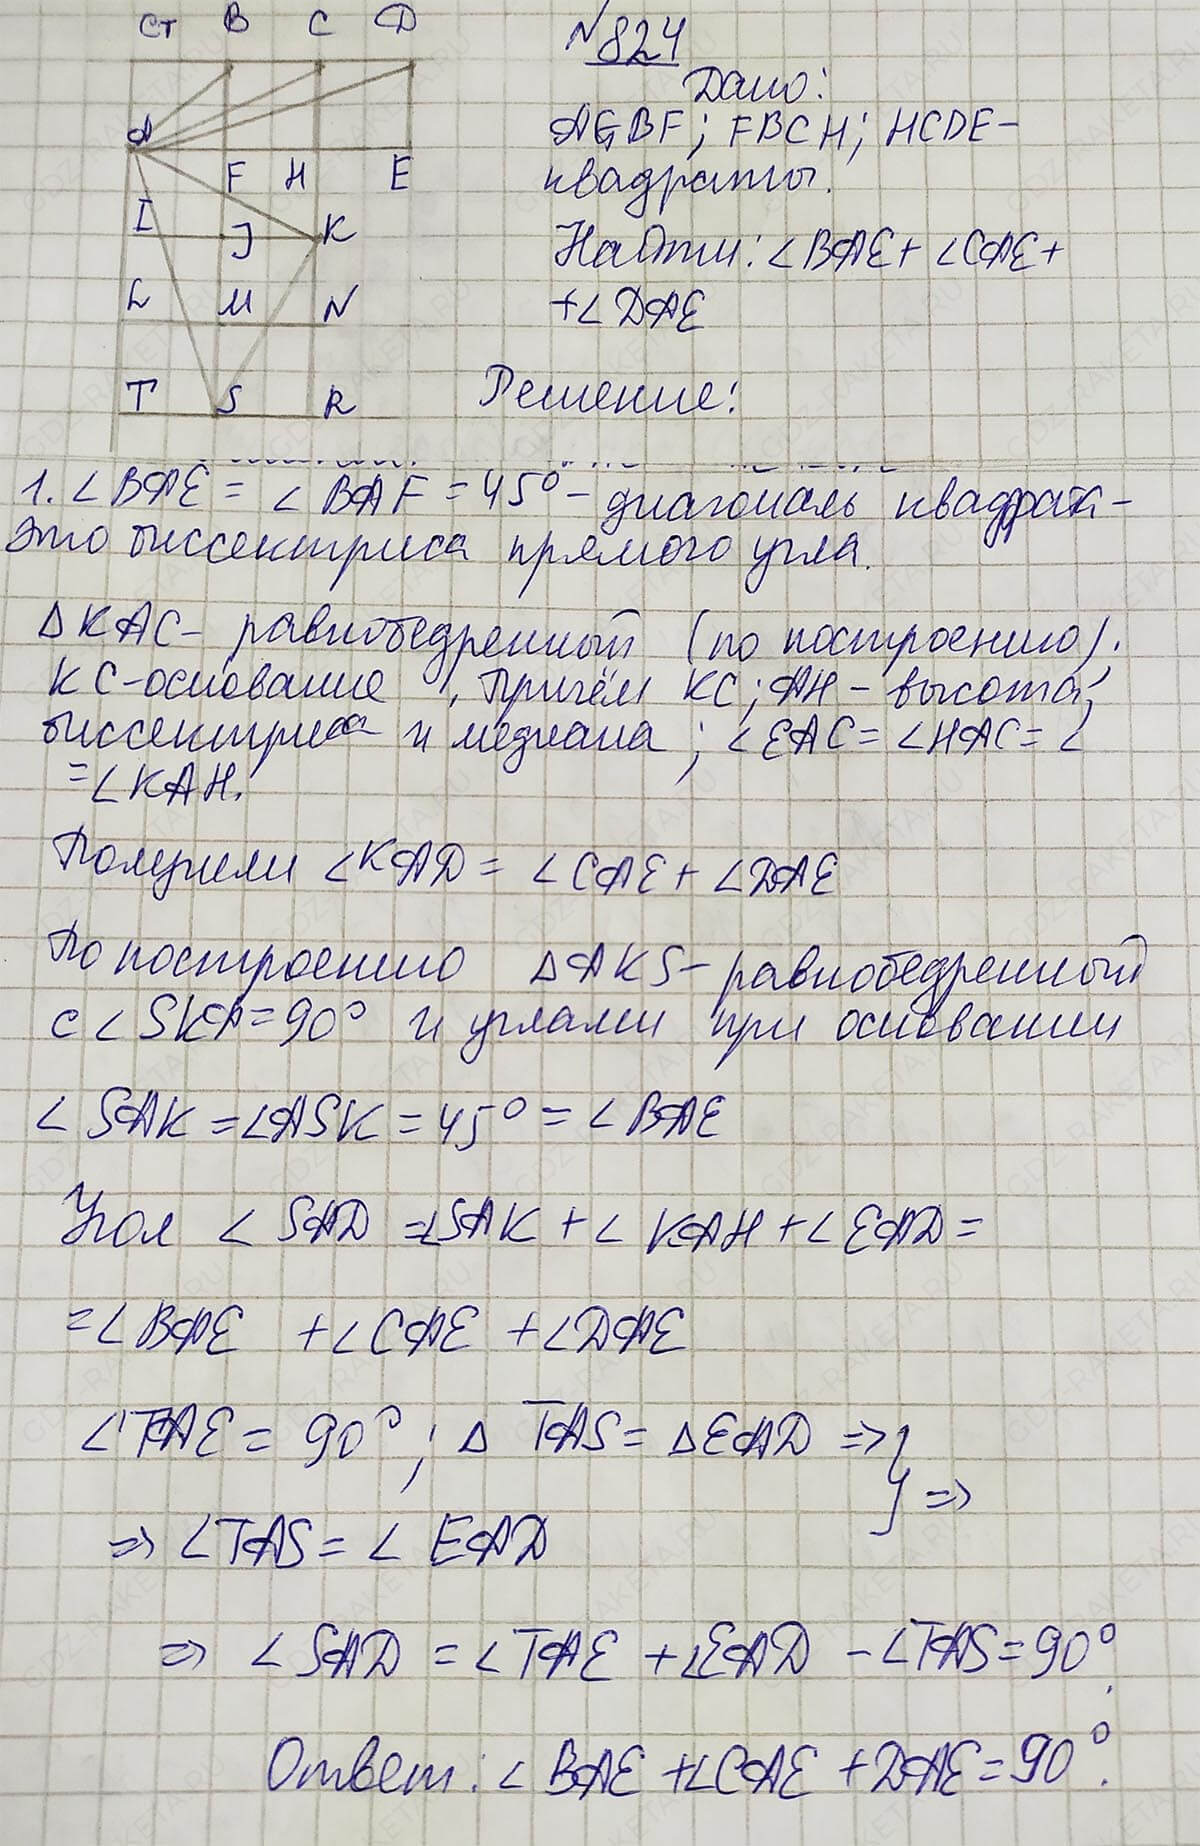 G B C D
№824
Дано:
A
AGBF; FBCH; HCDE-
F H E
квадраты.
I J K
Найти: ∠BAE+ ∠CAE+
L M N
+∠DAE
T S R
Решение:
1. ∠BAE = ∠BAF = 45° - диагональ квадрата-
это биссектриса прямого угла.
ΔKAC- равнобедренный (по построению);
KC-основание, причём KC; AH - высота,
биссектриса и медиана; ∠EAC = ∠HAC = ∠
=∠KAH.
Получили ∠KAD = ∠CAE + ∠DAE
По построению ΔAKS- равнобедренный
с ∠SKA=90° и углами при основании
∠SAK =∠ASK = 45° = ∠BAE
Угол ∠SAD =∠SAK + ∠KAH + ∠EAD =
=∠BAE +∠CAE +∠DAE
∠TAE = 90°; Δ TAS = ΔEAD => } =>
=> ∠TAS = ∠ EAD
=> ∠SAD = ∠TAE +∠EAD -∠TAS = 90°.
Ответ: ∠BAE +∠CAE +DAE = 90°.